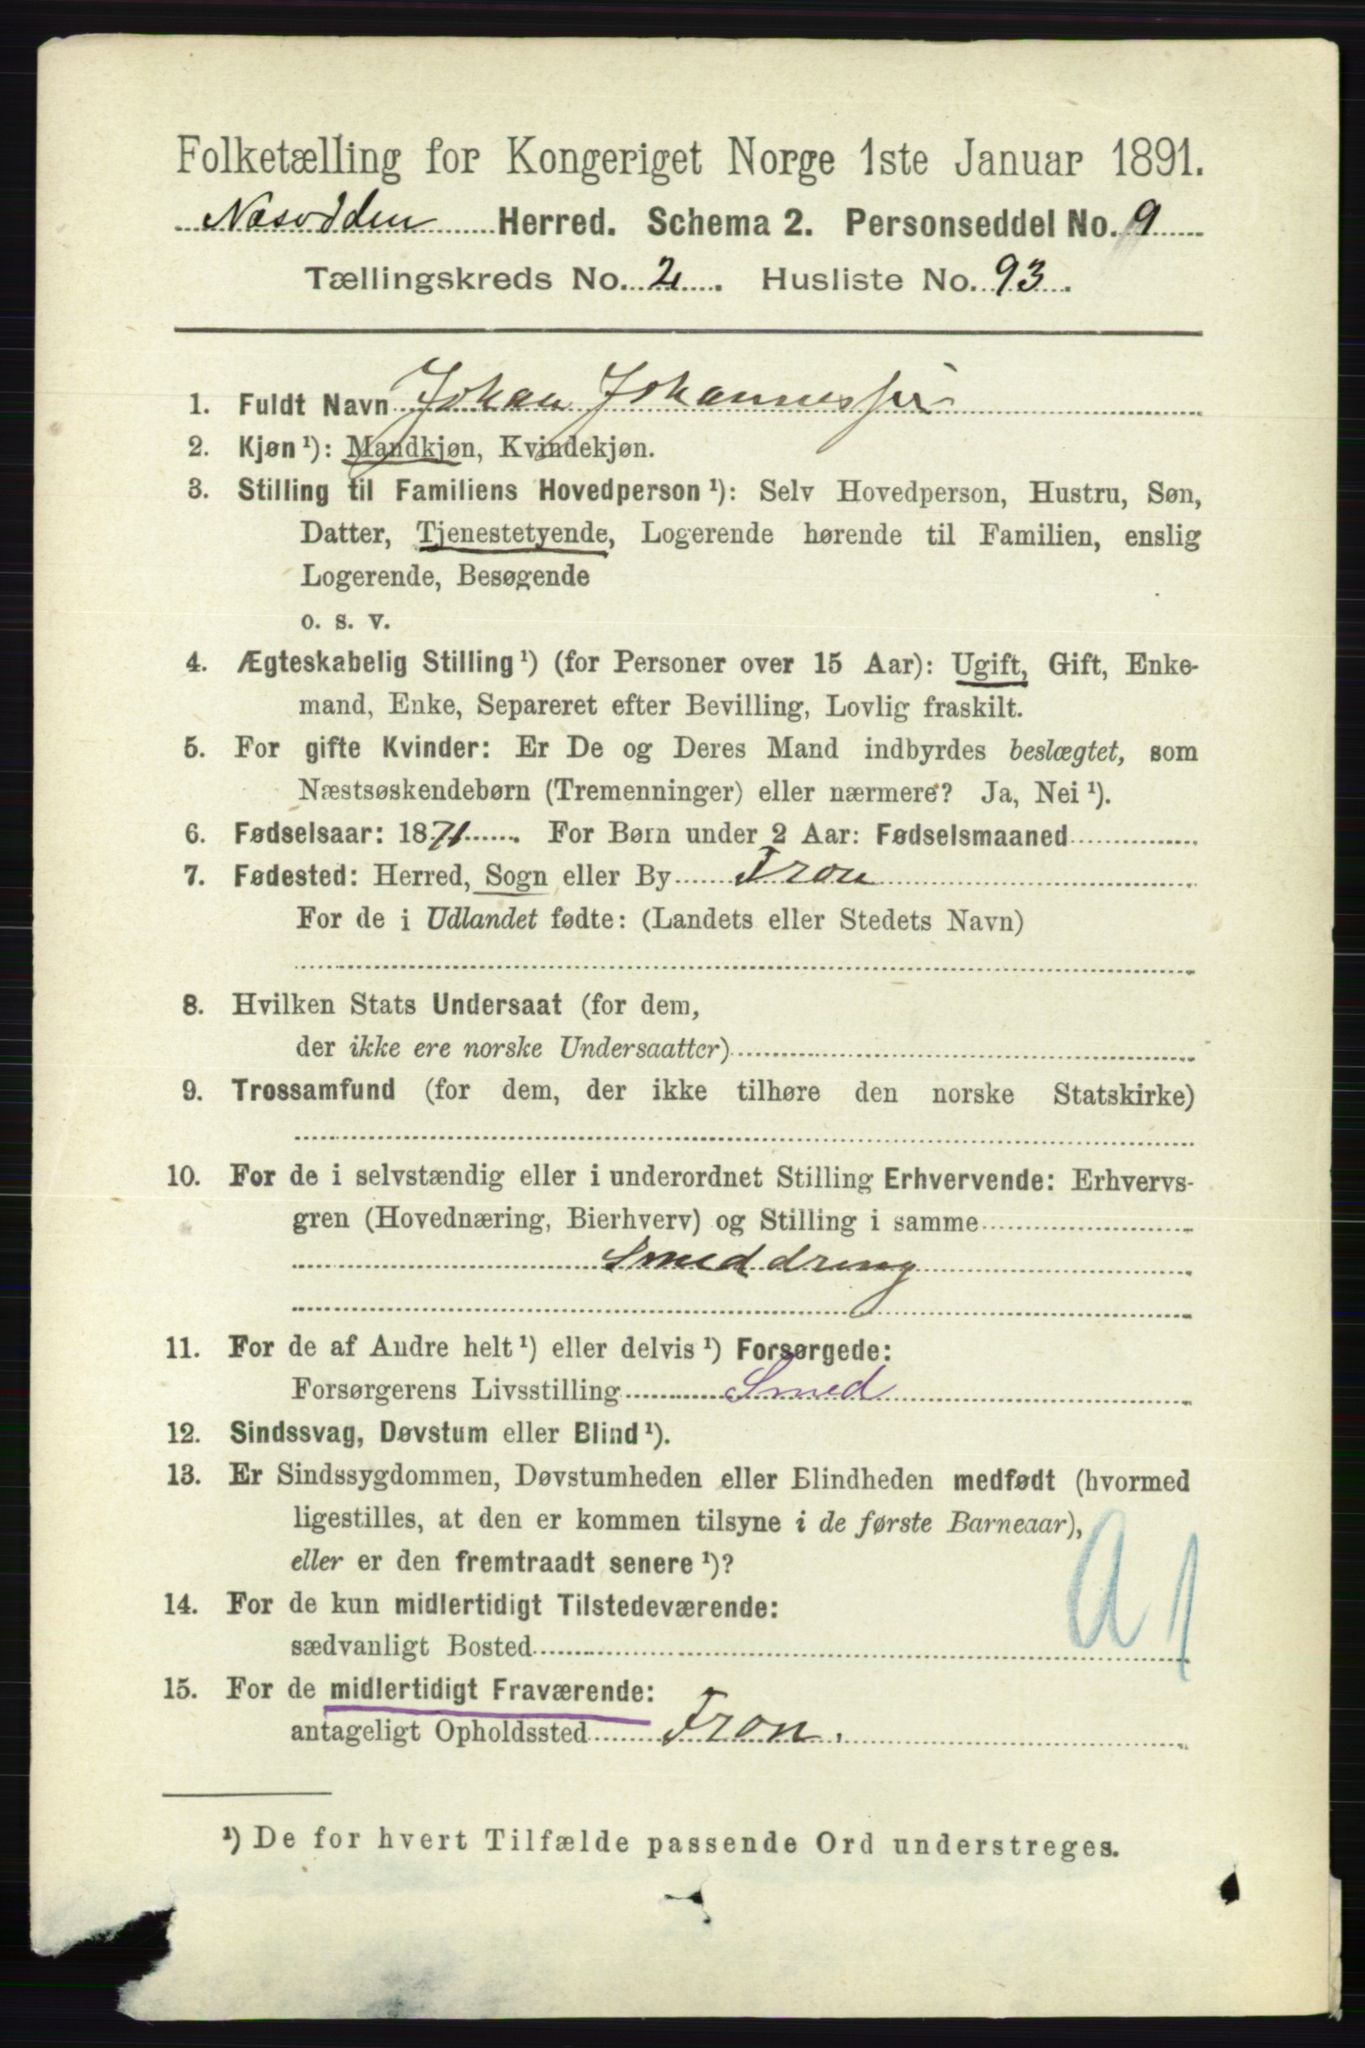 Folketælling for Kongeriget Norge 1ste Januar 1891.
Næsodden Herred. Schema 2. Personseddel No. 9
Tællingskreds No. 2. Husliste No. 93.
1. Fuldt Navn Johan Johannessen
2. Kjøn¹): Mandkjøn, Kvindekjøn.
3. Stilling til Familiens Hovedperson¹): Selv Hovedperson, Hustru, Søn,
Datter, Tjenestetyende, Logerende hørende til Familien, enslig
Logerende, Besøgende
o. s. v.
4. Ægteskabelig Stilling¹) (for Personer over 15 Aar): Ugift, Gift, Enke-
mand, Enke, Separeret efter Bevilling, Lovlig fraskilt.
5. For gifte Kvinder: Er De og Deres Mand indbyrdes beslægtet, som
Næstsøskendebørn (Tremenninger) eller nærmere? Ja, Nei¹).
6. Fødselsaar: 1871. For Børn under 2 Aar: Fødselsmaaned
7. Fødested: Herred, Sogn eller By Fron
For de i Udlandet fødte: (Landets eller Stedets Navn)
8. Hvilken Stats Undersaat (for dem,
der ikke ere norske Undersaatter)
9. Trossamfund (for dem, der ikke tilhøre den norske Statskirke)
10. For de i selvstændig eller i underordnet Stilling Erhvervende: Erhvervs-
gren (Hovednæring, Bierhverv) og Stilling i samme
Smeddreng
11. For de af Andre helt¹) eller delvis¹) Forsørgede:
Forsørgerens Livsstilling Smed
12. Sindssvag, Døvstum eller Blind¹).
13. Er Sindssygdommen, Døvstumheden eller Blindheden medfødt (hvormed
ligestilles, at den er kommen tilsyne i de første Barneaar),
eller er den fremtraadt senere¹)?
A1
14. For de kun midlertidigt Tilstedeværende:
sædvanligt Bosted
15. For de midlertidigt Fraværende:
antageligt Opholdssted Fron.
¹) De for hvert Tilfælde passende Ord understreges.